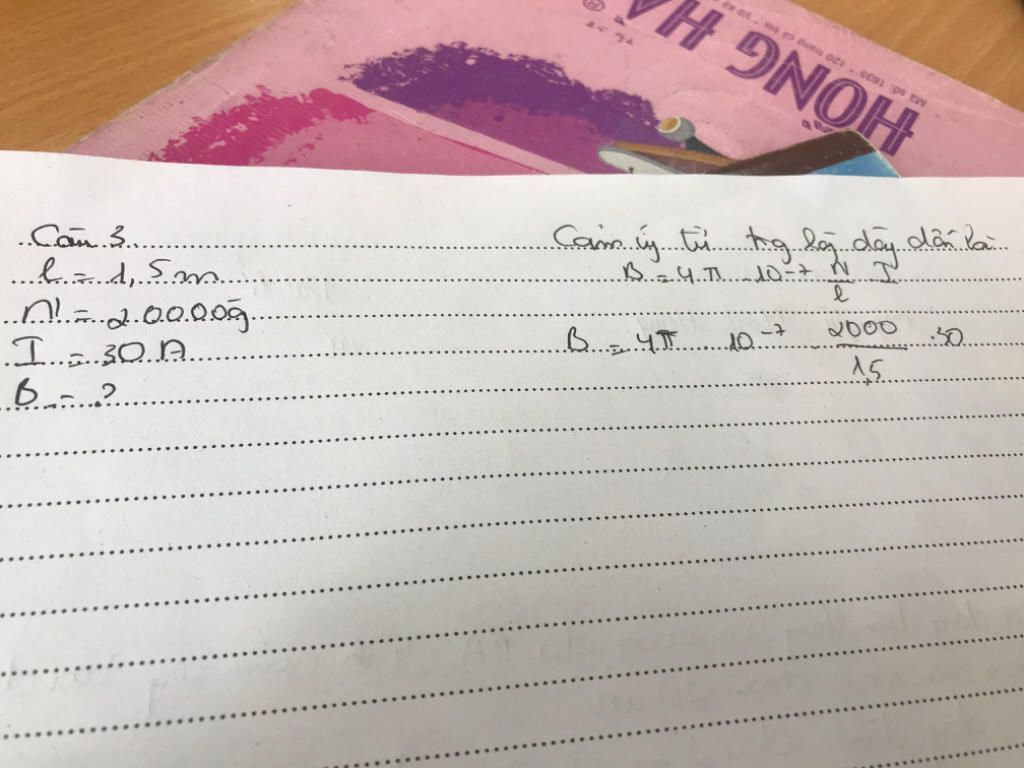 HONG HA
®
Mã số: 1835 - 120 trang
Câu 3
l = 1,5m
N = 2000 vòng
I = 30A
B = ?
Cảm ứng từ trg lõg dây dẫn là
B = 4π 10⁻⁷ N/l I
B = 4π 10⁻⁷ . 2000/1,5 .30